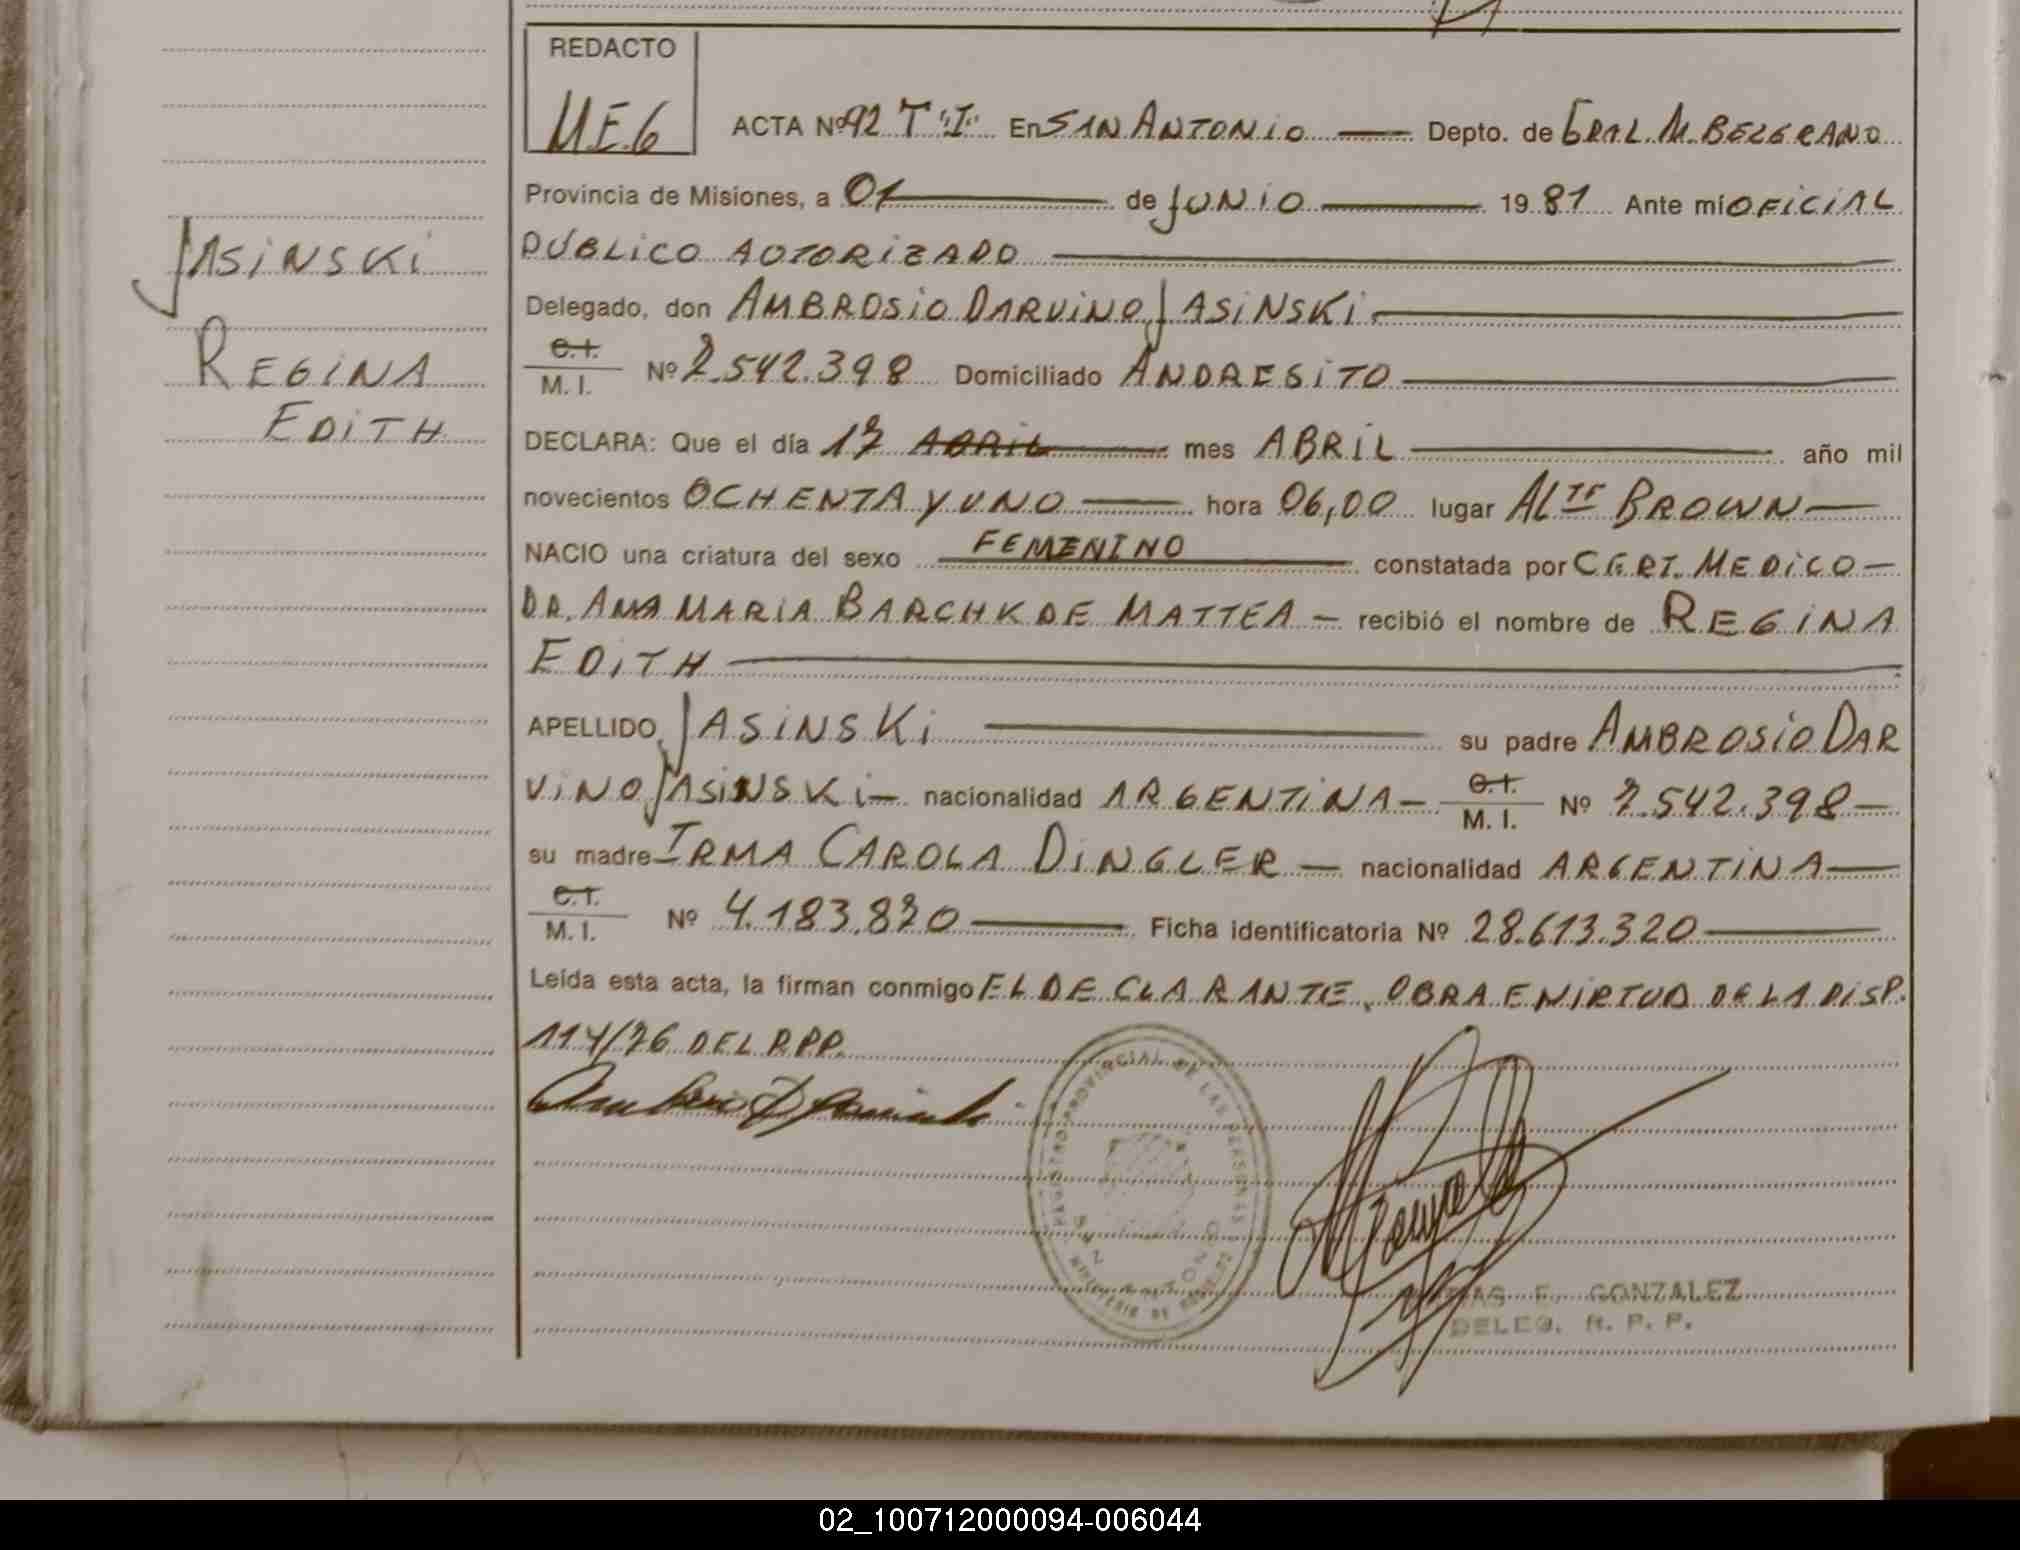 REDACTO
M.E.G
ACTA Nº 92 T "I" En SAN ANTONIO Depto. de GRAL. M. BELGRANO
Provincia de Misiones, a 01 de JUNIO 1981 Ante mí OFICIAL
PUBLICO AUTORIZADO
JASINSKI
Delegado, don AMBROSIO DARVINO JASINSKI
REGINA
C.I. M. I. Nº 7.542.398 Domiciliado ANDRESITO
EDITH
DECLARA: Que el día 17 ABRIL mes ABRIL año mil
novecientos OCHENTA Y UNO hora 06,00 lugar ALTE BROWN
NACIO una criatura del sexo FEMENINO constatada por CERT. MEDICO
DR. ANA MARIA BARCHK DE MATTEA recibió el nombre de REGINA
EDITH
APELLIDO JASINSKI su padre AMBROSIO DAR
VINO JASINSKI nacionalidad ARGENTINA C.I. M. I. Nº 7.542.398
su madre IRMA CAROLA DINGLER nacionalidad ARGENTINA
C.I. M. I. Nº 4.183.870 Ficha identificatoria Nº 28.613.320
Leída esta acta, la firman conmigo EL DECLARANTE, OBRA EN IRTUD DE LA DISP.
114/76 DEL R.P.P.
REGISTRO PROVINCIAL DE LAS PERSONAS
SAN ANTONIO
MINISTERIO DE
E. GONZALEZ
DELEG. R. P. P.
02_100712000094-006044